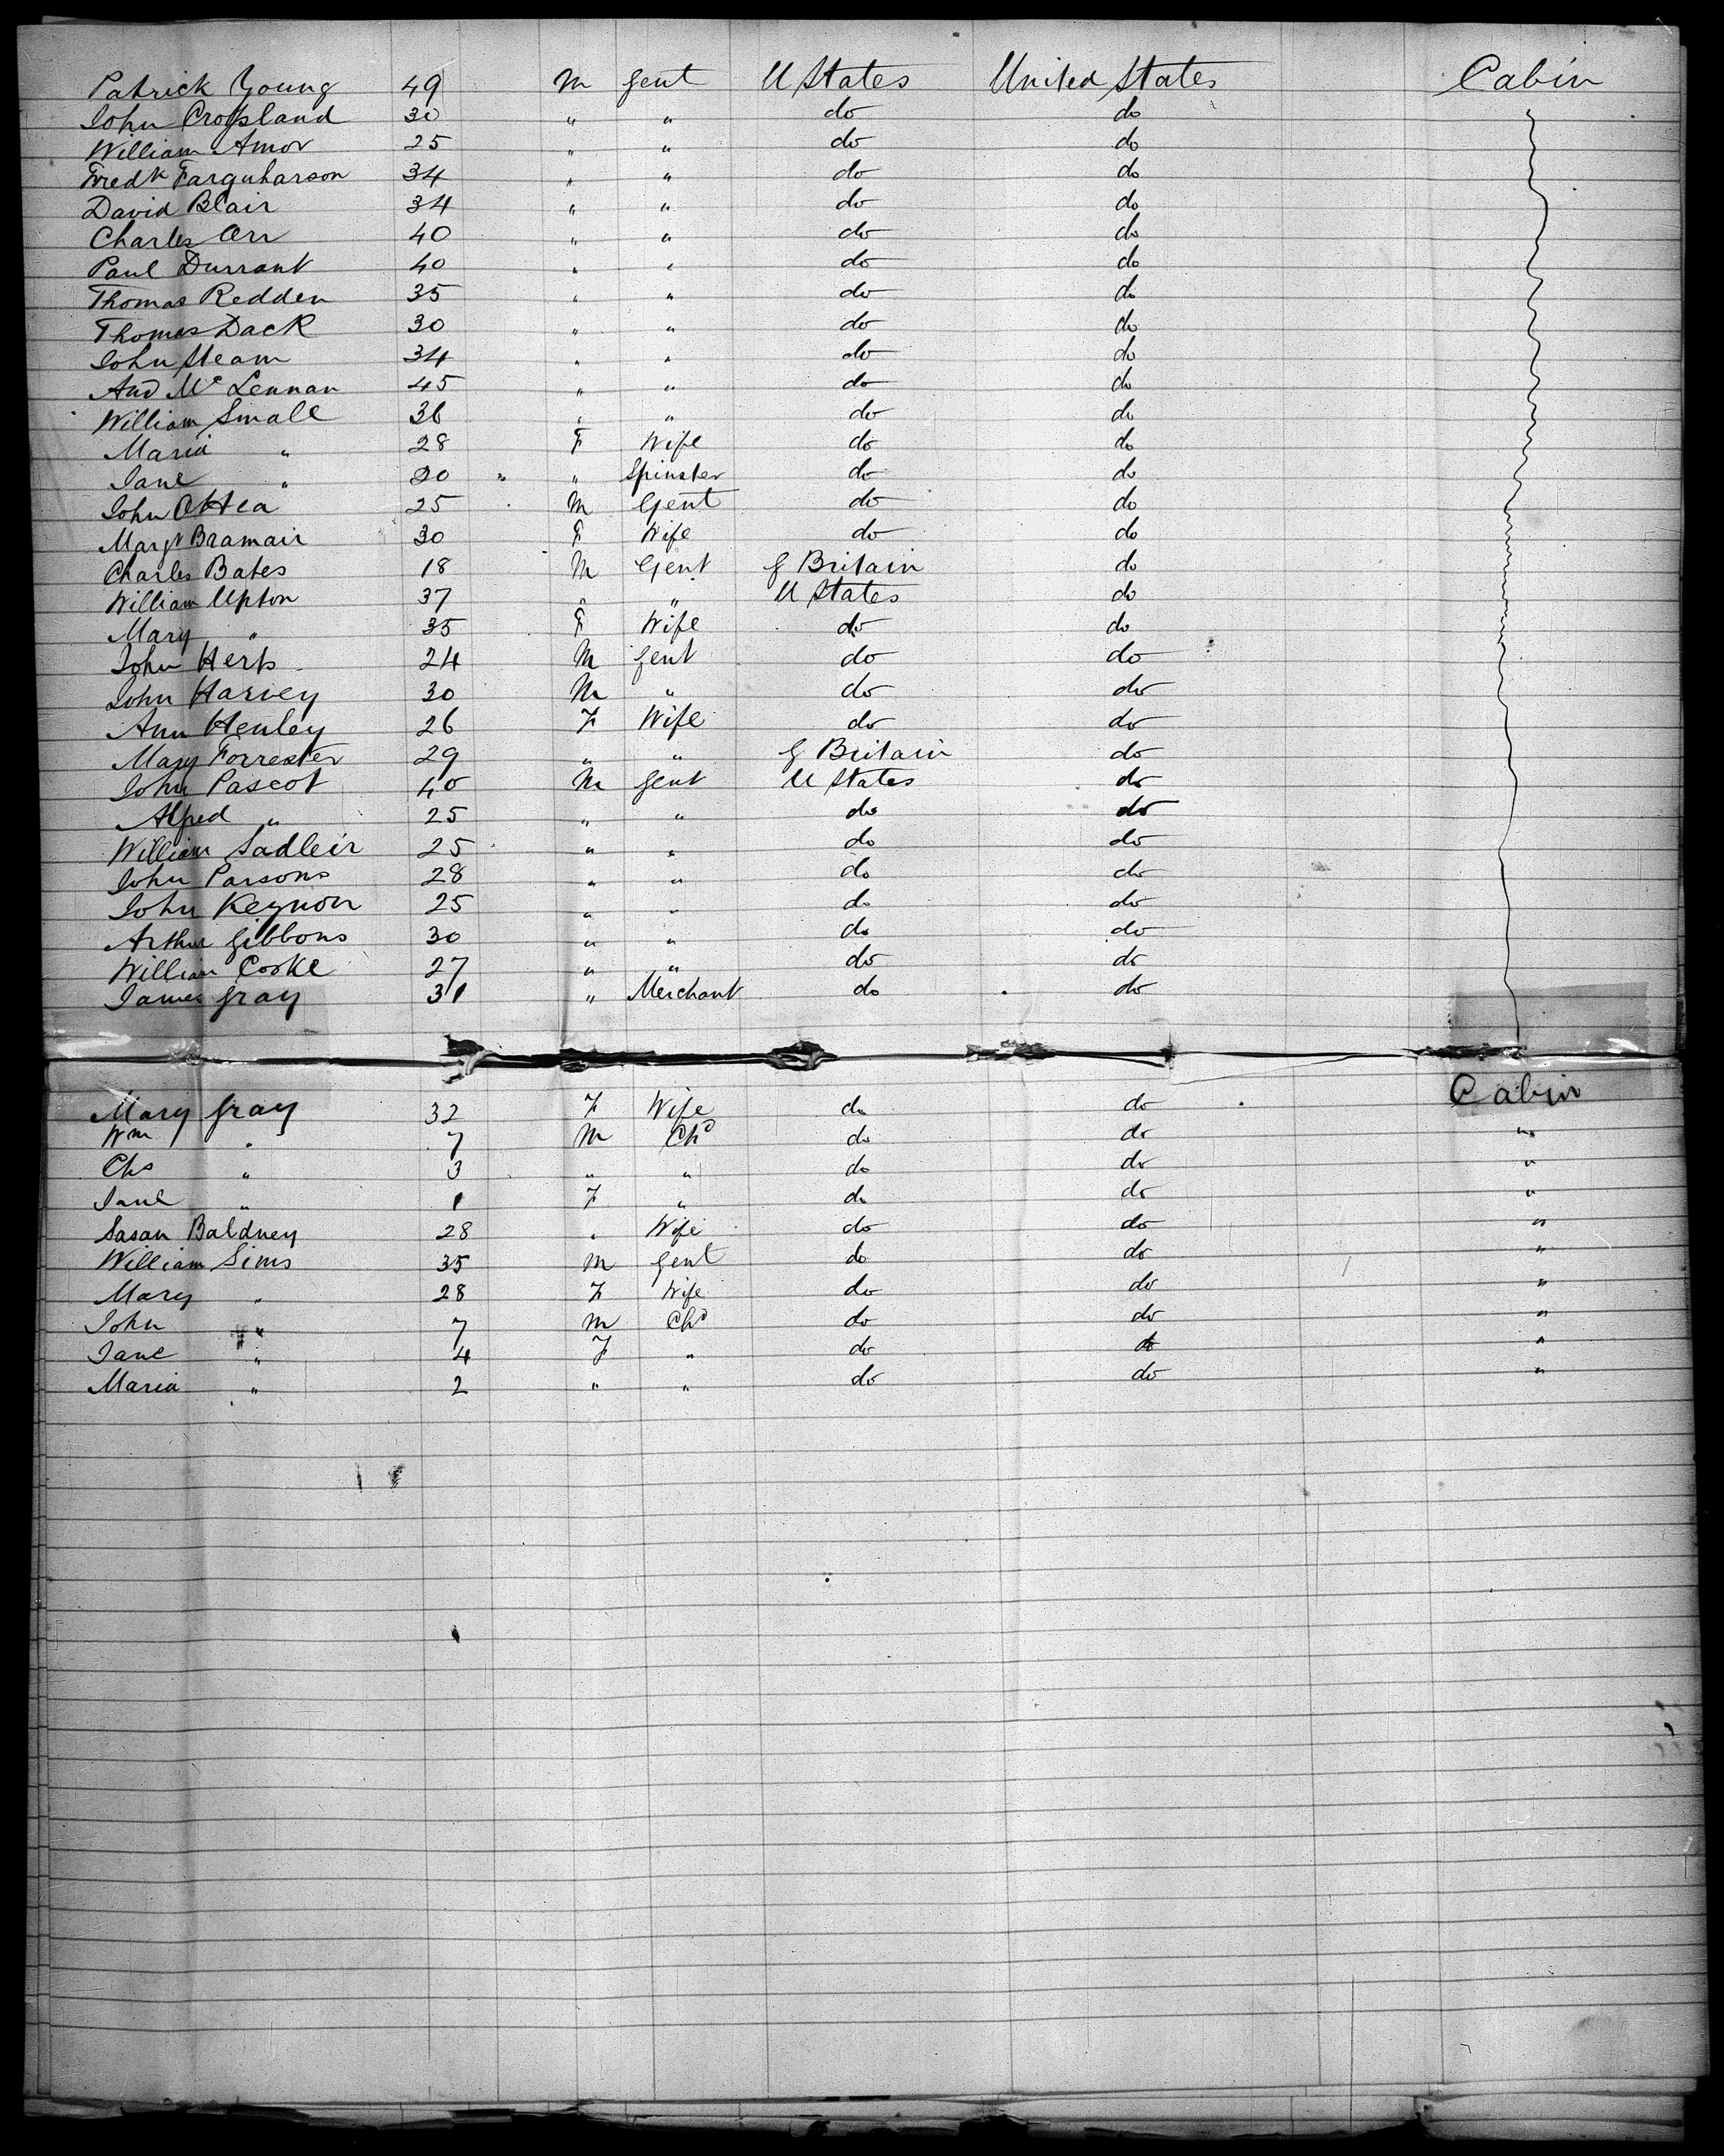 Patrick Young 49 M Gent U States United States Cabin
John Crossland 30 " " do do
William Amor 25 " " do do
Fredk Farquharson 34 " " do do
David Blair 34 " " do do
Charles Orr 40 " " do do
Paul Durrant 40 " " do do
Thomas Redden 35 " " do do
Thomas Dack 30 " " do do
John Steam 34 " " do do
And Mc Lennan 45 " " do do
William Small 36 " " do do
Maria " 28 F Wife do do
Jane " 20 " " Spinster do do
John O'Hea 25 M Gent do do
Margt Bramair 30 F Wife do do
Charles Bates 18 M Gent G Britain do
William Upton 37 " " U States do
Mary " 35 F Wife do do
John Herb 24 M Gent do do
John Harvey 30 M " do do
Ann Henley 26 F Wife do do
Mary Forrester 29 " " G Britain do
John Pascot 40 M Gent U States do
Alfred " 25 " " do do
William Sadleir 25 " " do do
John Parsons 28 " " do do
John Keynon 25 " " do do
Arthur Gibbons 30 " " do do
William Cooke 27 " " do do
James Gray 31 " Merchant do do
Mary Gray 32 F Wife do do Cabin
Wm " 7 M Chd do do "
Chs " 3 " " do do "
Jane " 1 F " do do "
Susan Baldney 28 " Wife do do "
William Sims 35 M Gent do do "
Mary " 28 F Wife do do "
John " 7 M Chd do do "
Jane " 4 F " do do "
Maria " 2 " " do do "